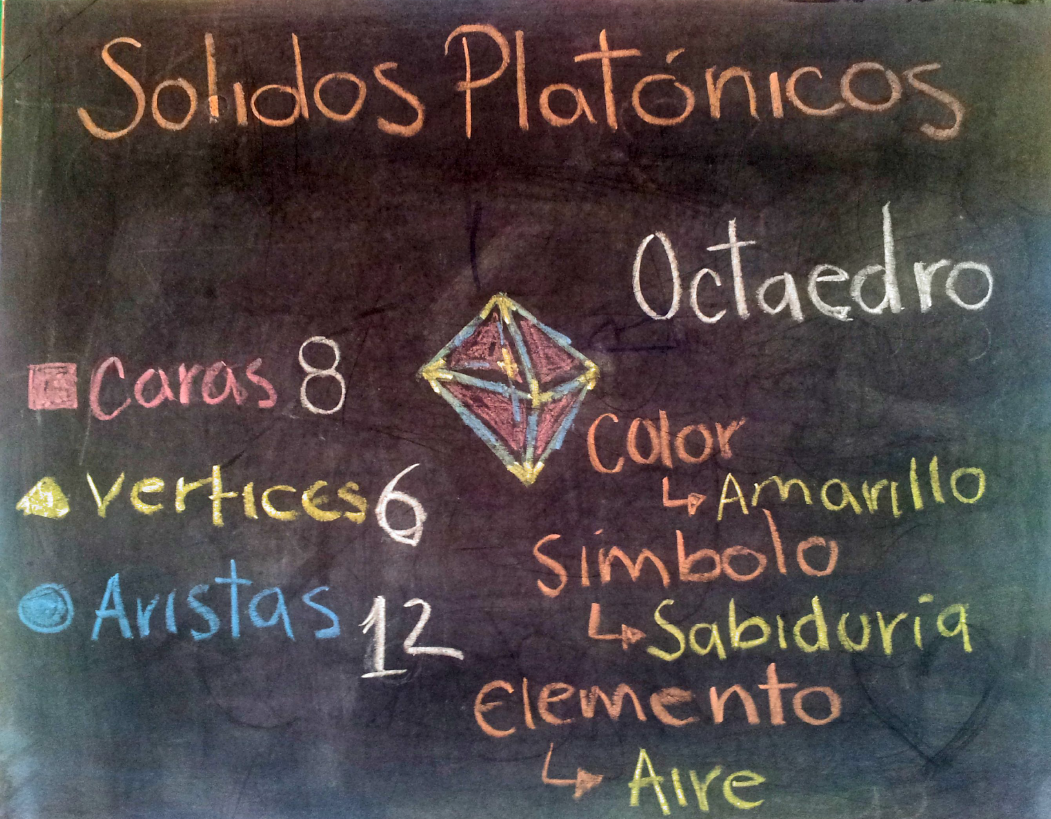 Solidos Platónicos
Octaedro
Caras 8
Vertices 6
Aristas 12
Color
Amarillo
Símbolo
Sabiduria
Elemento
Aire